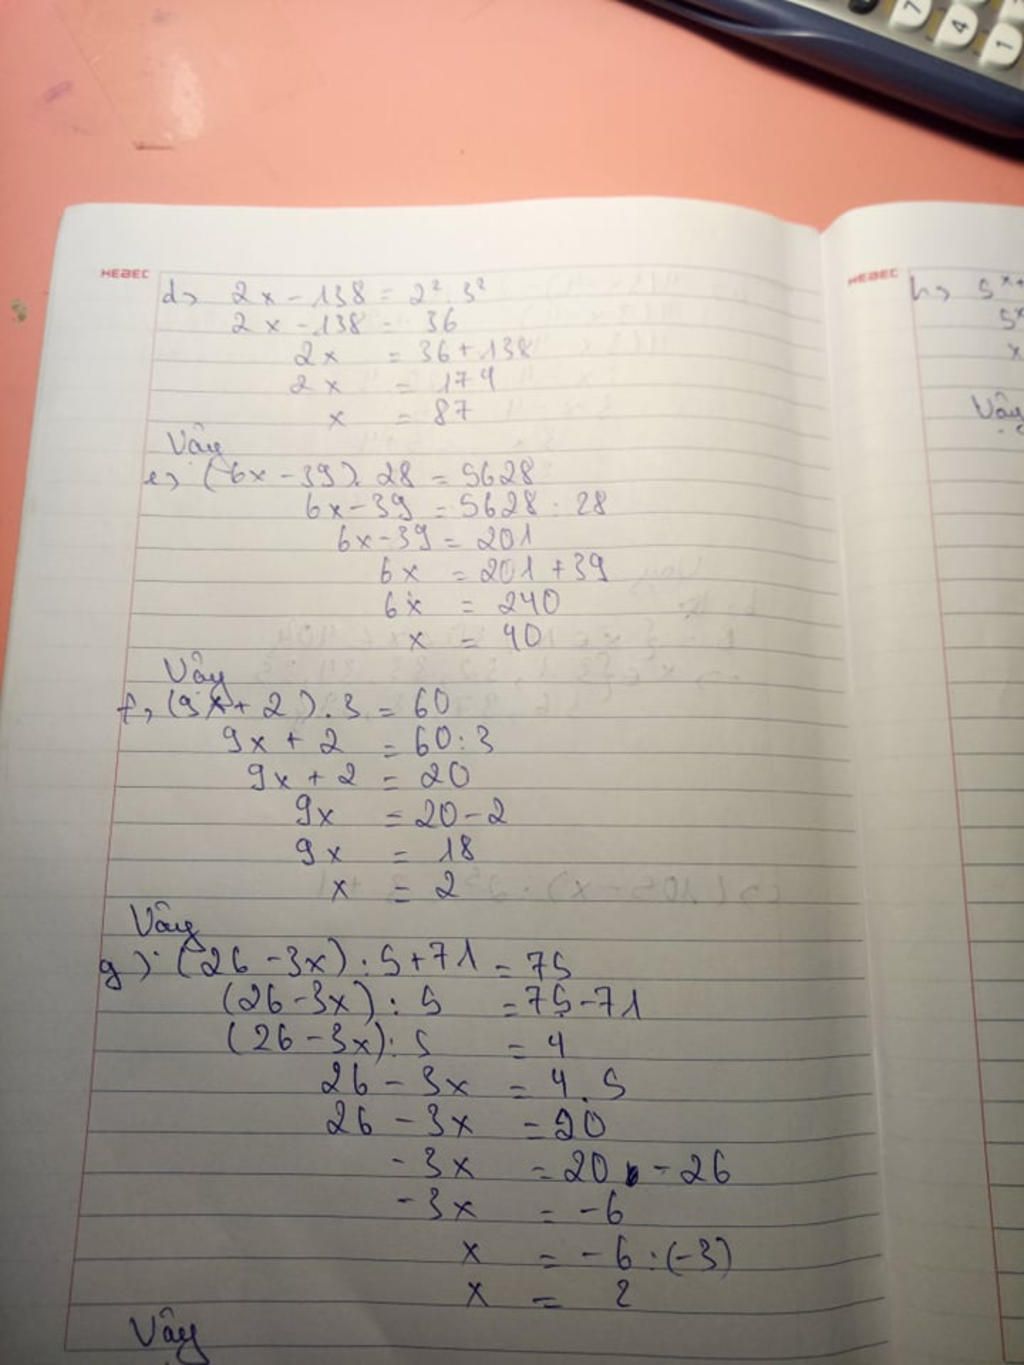 7
4
1
HEBEC
d, 2x - 138 = 2². 3²
2x - 138 = 36
2x = 36 + 138
2x = 174
x = 87
Vậy
e, (6x - 39). 28 = 5628
6x - 39 = 5628 : 28
6x - 39 = 201
6x = 201 + 39
6x = 240
x = 40
Vậy
f, (9x + 2). 3 = 60
9x + 2 = 60 : 3
9x + 2 = 20
9x = 20 - 2
9x = 18
x = 2
Vậy
g) (26 - 3x) : 5 + 71 = 75
(26 - 3x) : 5 = 75 - 71
(26 - 3x) : 5 = 4
26 - 3x = 4. 5
26 - 3x = 20
- 3x = 20 - 26
- 3x = - 6
x = - 6 : (-3)
x = 2
Vậy
HEBEC
h, 5ˣ⁺
5ˣ
x
Vậy